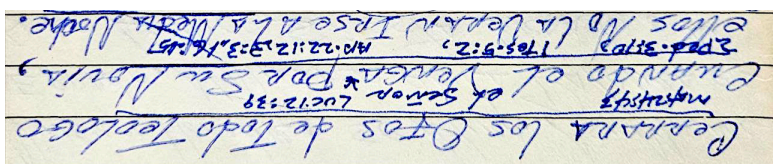 CERRARA LOS OJOS de TODO TEOLOGO
MAT.24:43 el SEÑOR LUC.12:39
CUANDO el VENGA * POR SU NOVIA,
2PED.3:10, 1TES.5:2, AP.22:12, 3:3, 16:15
ellos NO LA VERAN IRSE A LA MEDIA NOCHE.